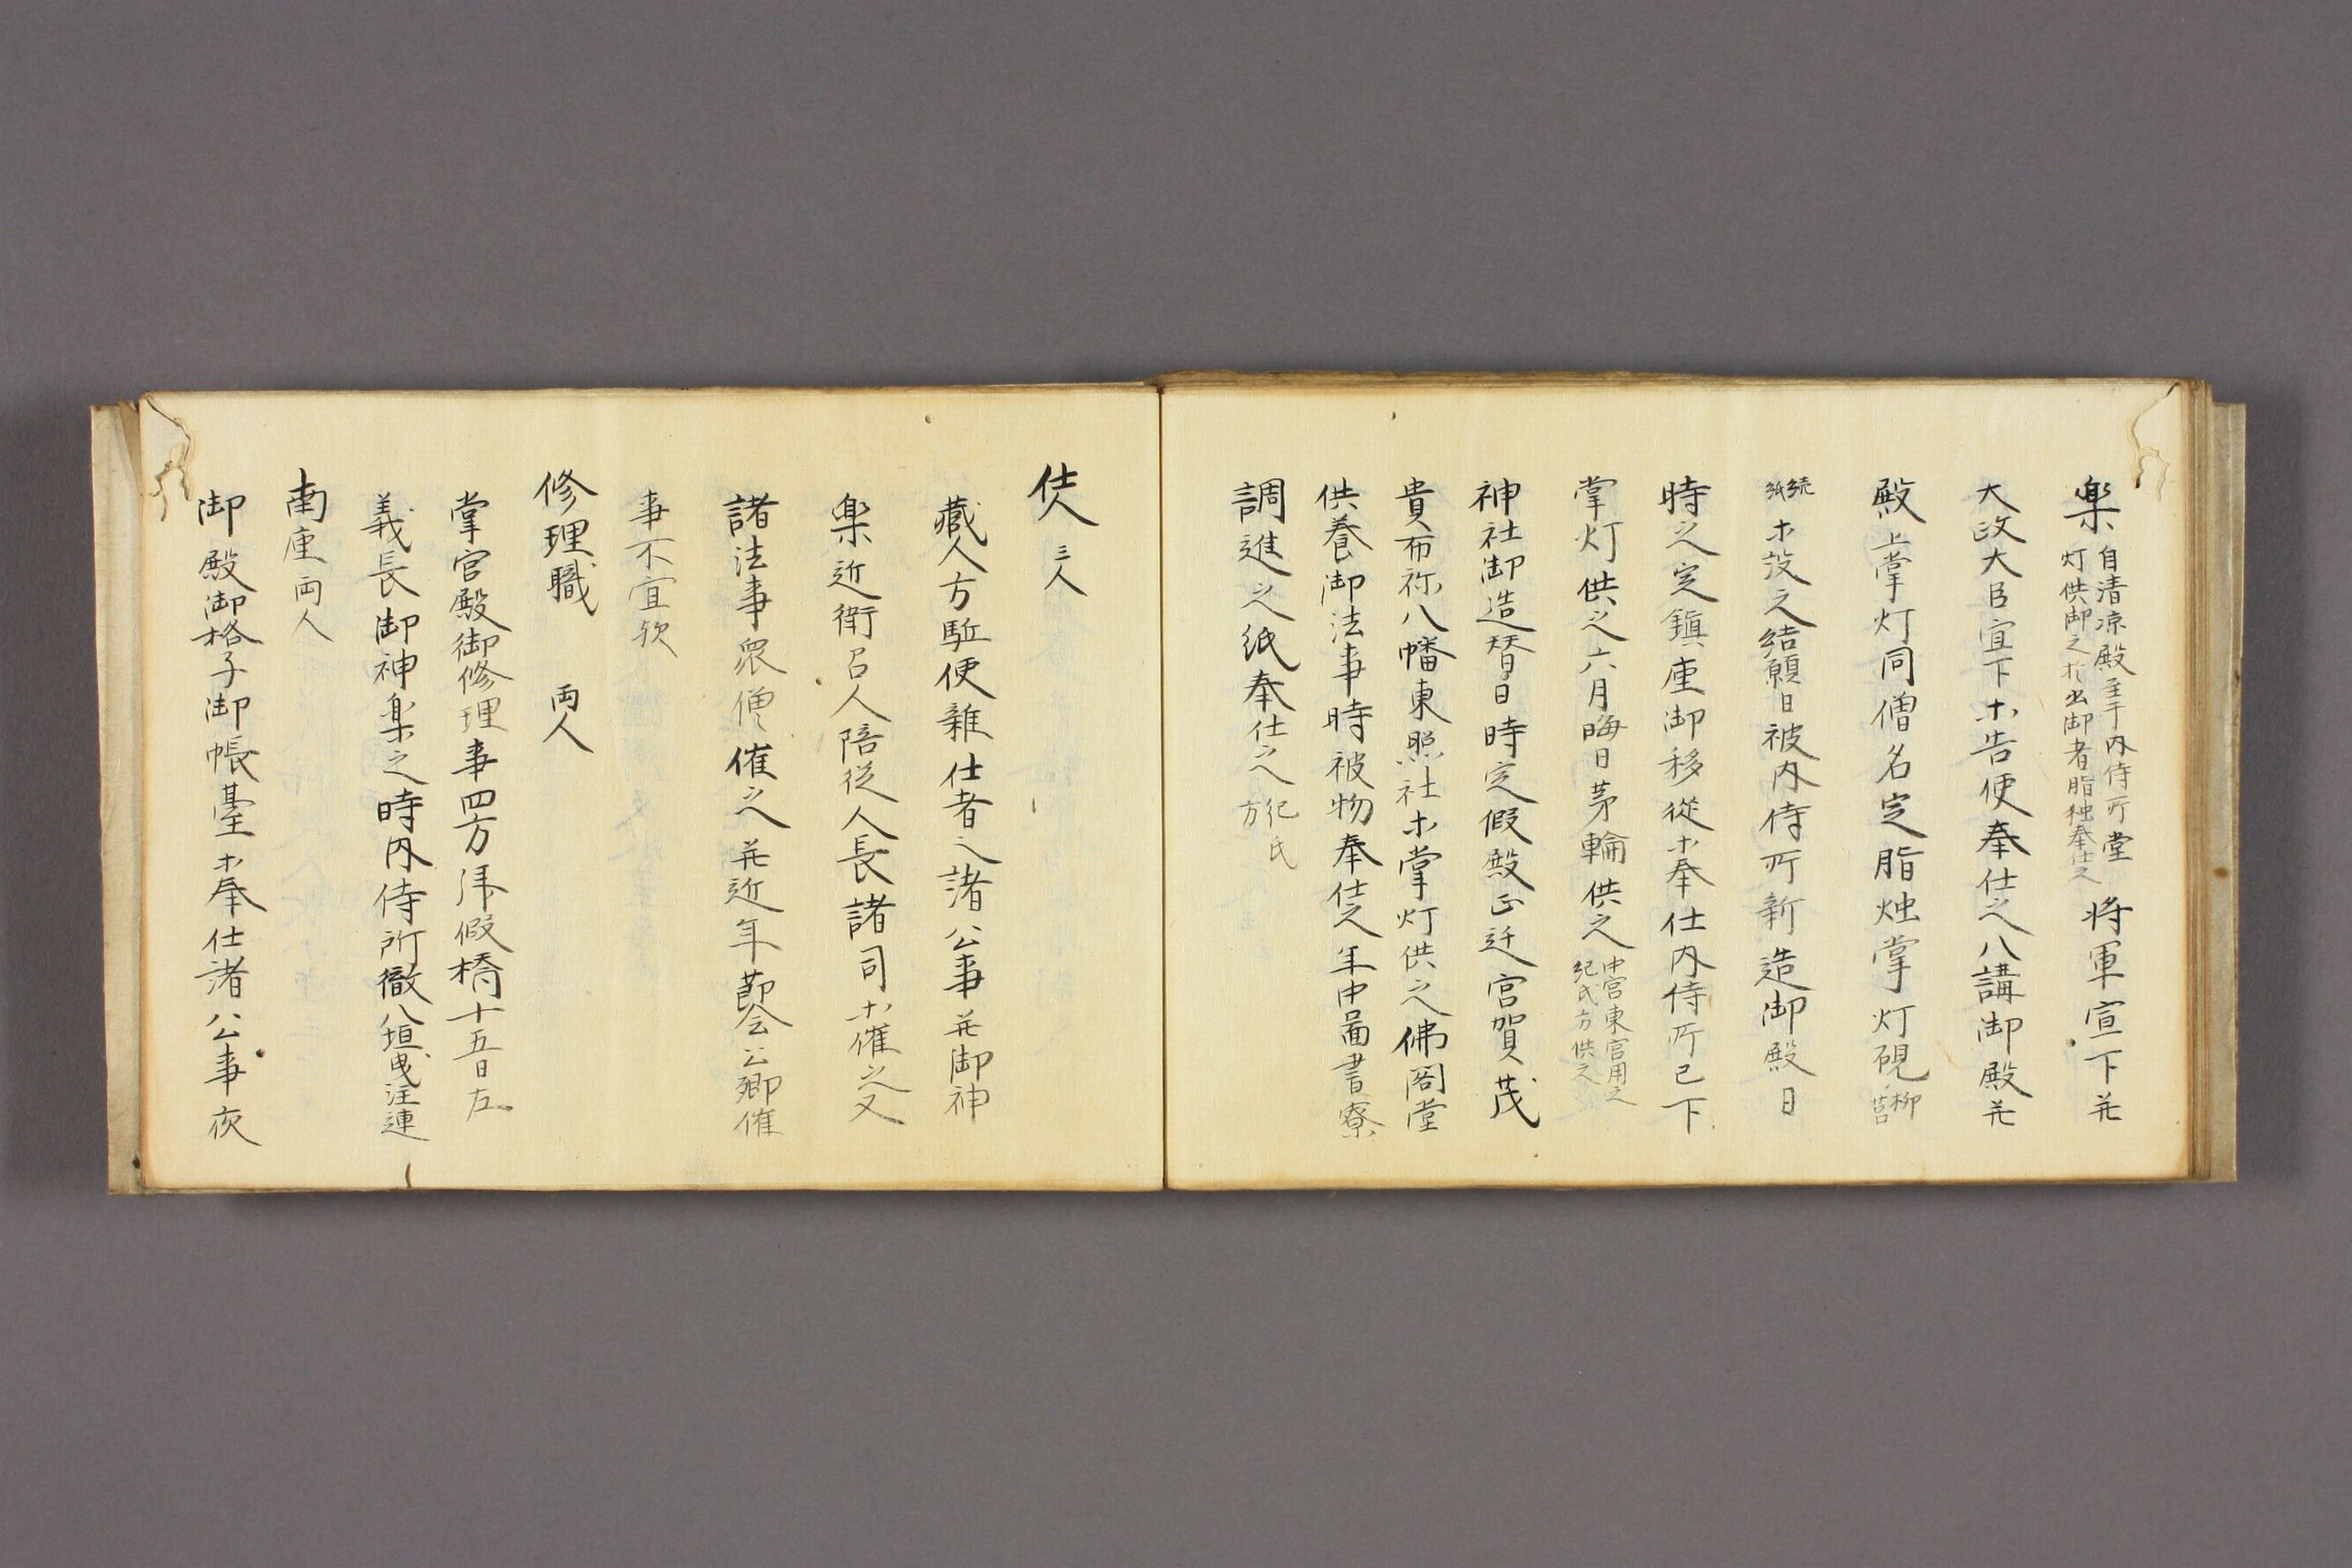 楽 自清凉殿至于内侍所堂 灯供御之於出御者脂独奉仕之 将軍宣下并
大政大臣宣下ホ告使奉仕之八講御殿并
殿上掌灯同僧名定脂烛掌灯硯 柳筥
続紙 ホ設之結願日被内侍所新造御殿日
時之定鎮座御移從ホ奉仕内侍所已下
掌灯供之六月晦日茅輪供之 中宮東宮用之 紀氏方供之
神社御造替日時定假殿正迁宮賀茂
貴布祢八幡東照社ホ掌灯供之佛閣堂
供養御法事時被物奉仕之年中圖書寮
調進之紙奉仕之 紀氏方
仕人 三人
藏人方駈使雜仕者之諸公事并御神
楽近衛召人陪從人長諸司ホ催之又
諸法事衆僧催之并近年節会公卿催
事不宜欤
修理職 両人
掌官殿御修理事四方拝假橋十五日左
義長御神楽之時内侍所徹八垣曳注連
南座 両人
御殿御格子御帳臺ホ奉仕諸公事夜